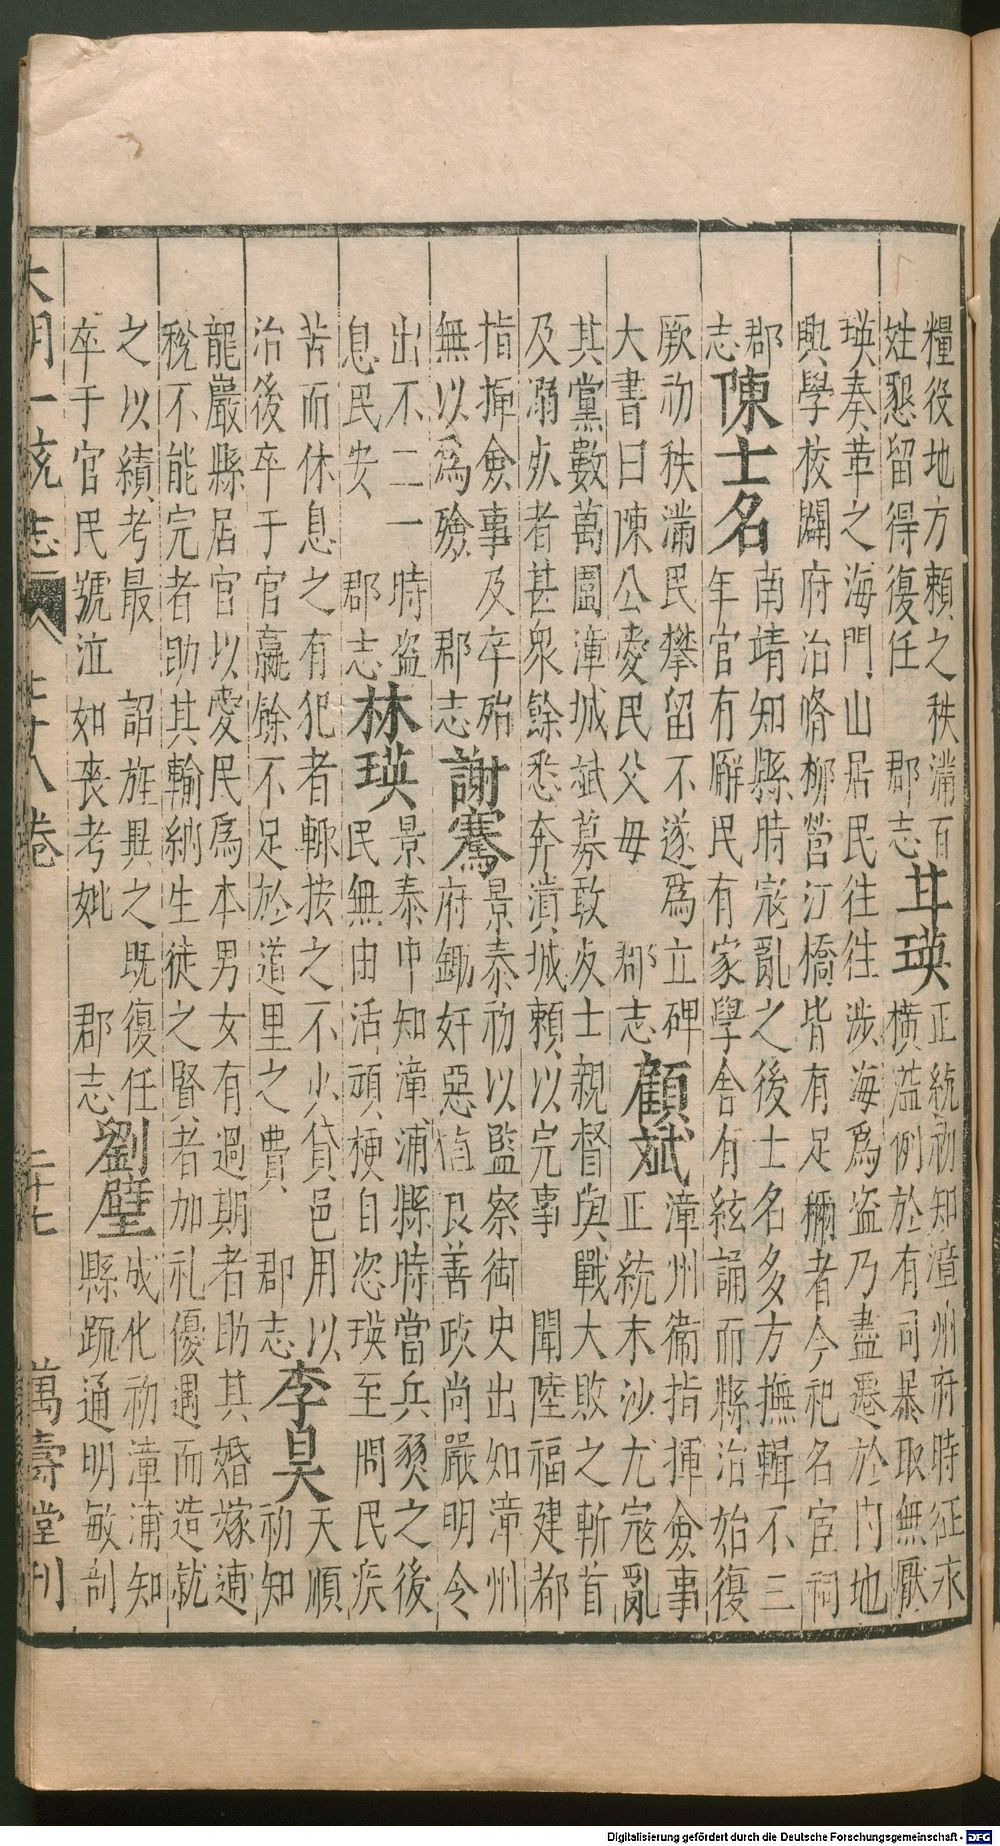 糧役地方賴之秩滿百
姓懇留得復任　郡志甘瑛正統初知漳州府時征求
橫濫例於有司暴取無厭
瑛奏革之海門山居民往往涉海為盜乃盡遷於內地
興學校闢府治脩柳營江橋皆有足稱者今祀名宦祠
郡志陳士名南靖知縣時寇亂之後士名多方撫輯不三
年官有廨民有家學舍有絃誦而縣治始復
厥初秩滿民攀留不遂為立碑
大書曰陳公愛民父母　郡志顧斌漳州衞指揮僉事
正統末沙尤寇亂
其黨數萬圍漳城斌募敢死士親督與戰大敗之斬首
及溺死者甚衆餘悉奔潰城賴以完事　聞陞福建都
指揮僉事及卒殆
無以為殮　郡志謝騫景泰初以監察御史出知漳州
府鋤奸惡植良善政尚嚴明令
出不二一時盜
息民安　郡志林瑛景泰中知漳浦縣時當兵燹之後
民無由活頑梗自恣瑛至問民疾
苦而休息之有犯者輙按之不少貸邑用以
治後卒于官贏餘不足於道里之費　郡志李昊天順
初知
龍巖縣居官以愛民為本男女有過期者助其婚嫁逋
稅不能完者助其輸納生徒之賢者加礼優遇而造就
之以績考最　詔旌異之既復任
卒于官民號泣如喪考妣　郡志劉璧成化初漳浦知
縣䟽通明敏剖
大明一統志　七十八卷　二十七　萬壽堂刊
Digitalisierung gefördert durch die Deutsche Forschungsgemeinschaft - DFG